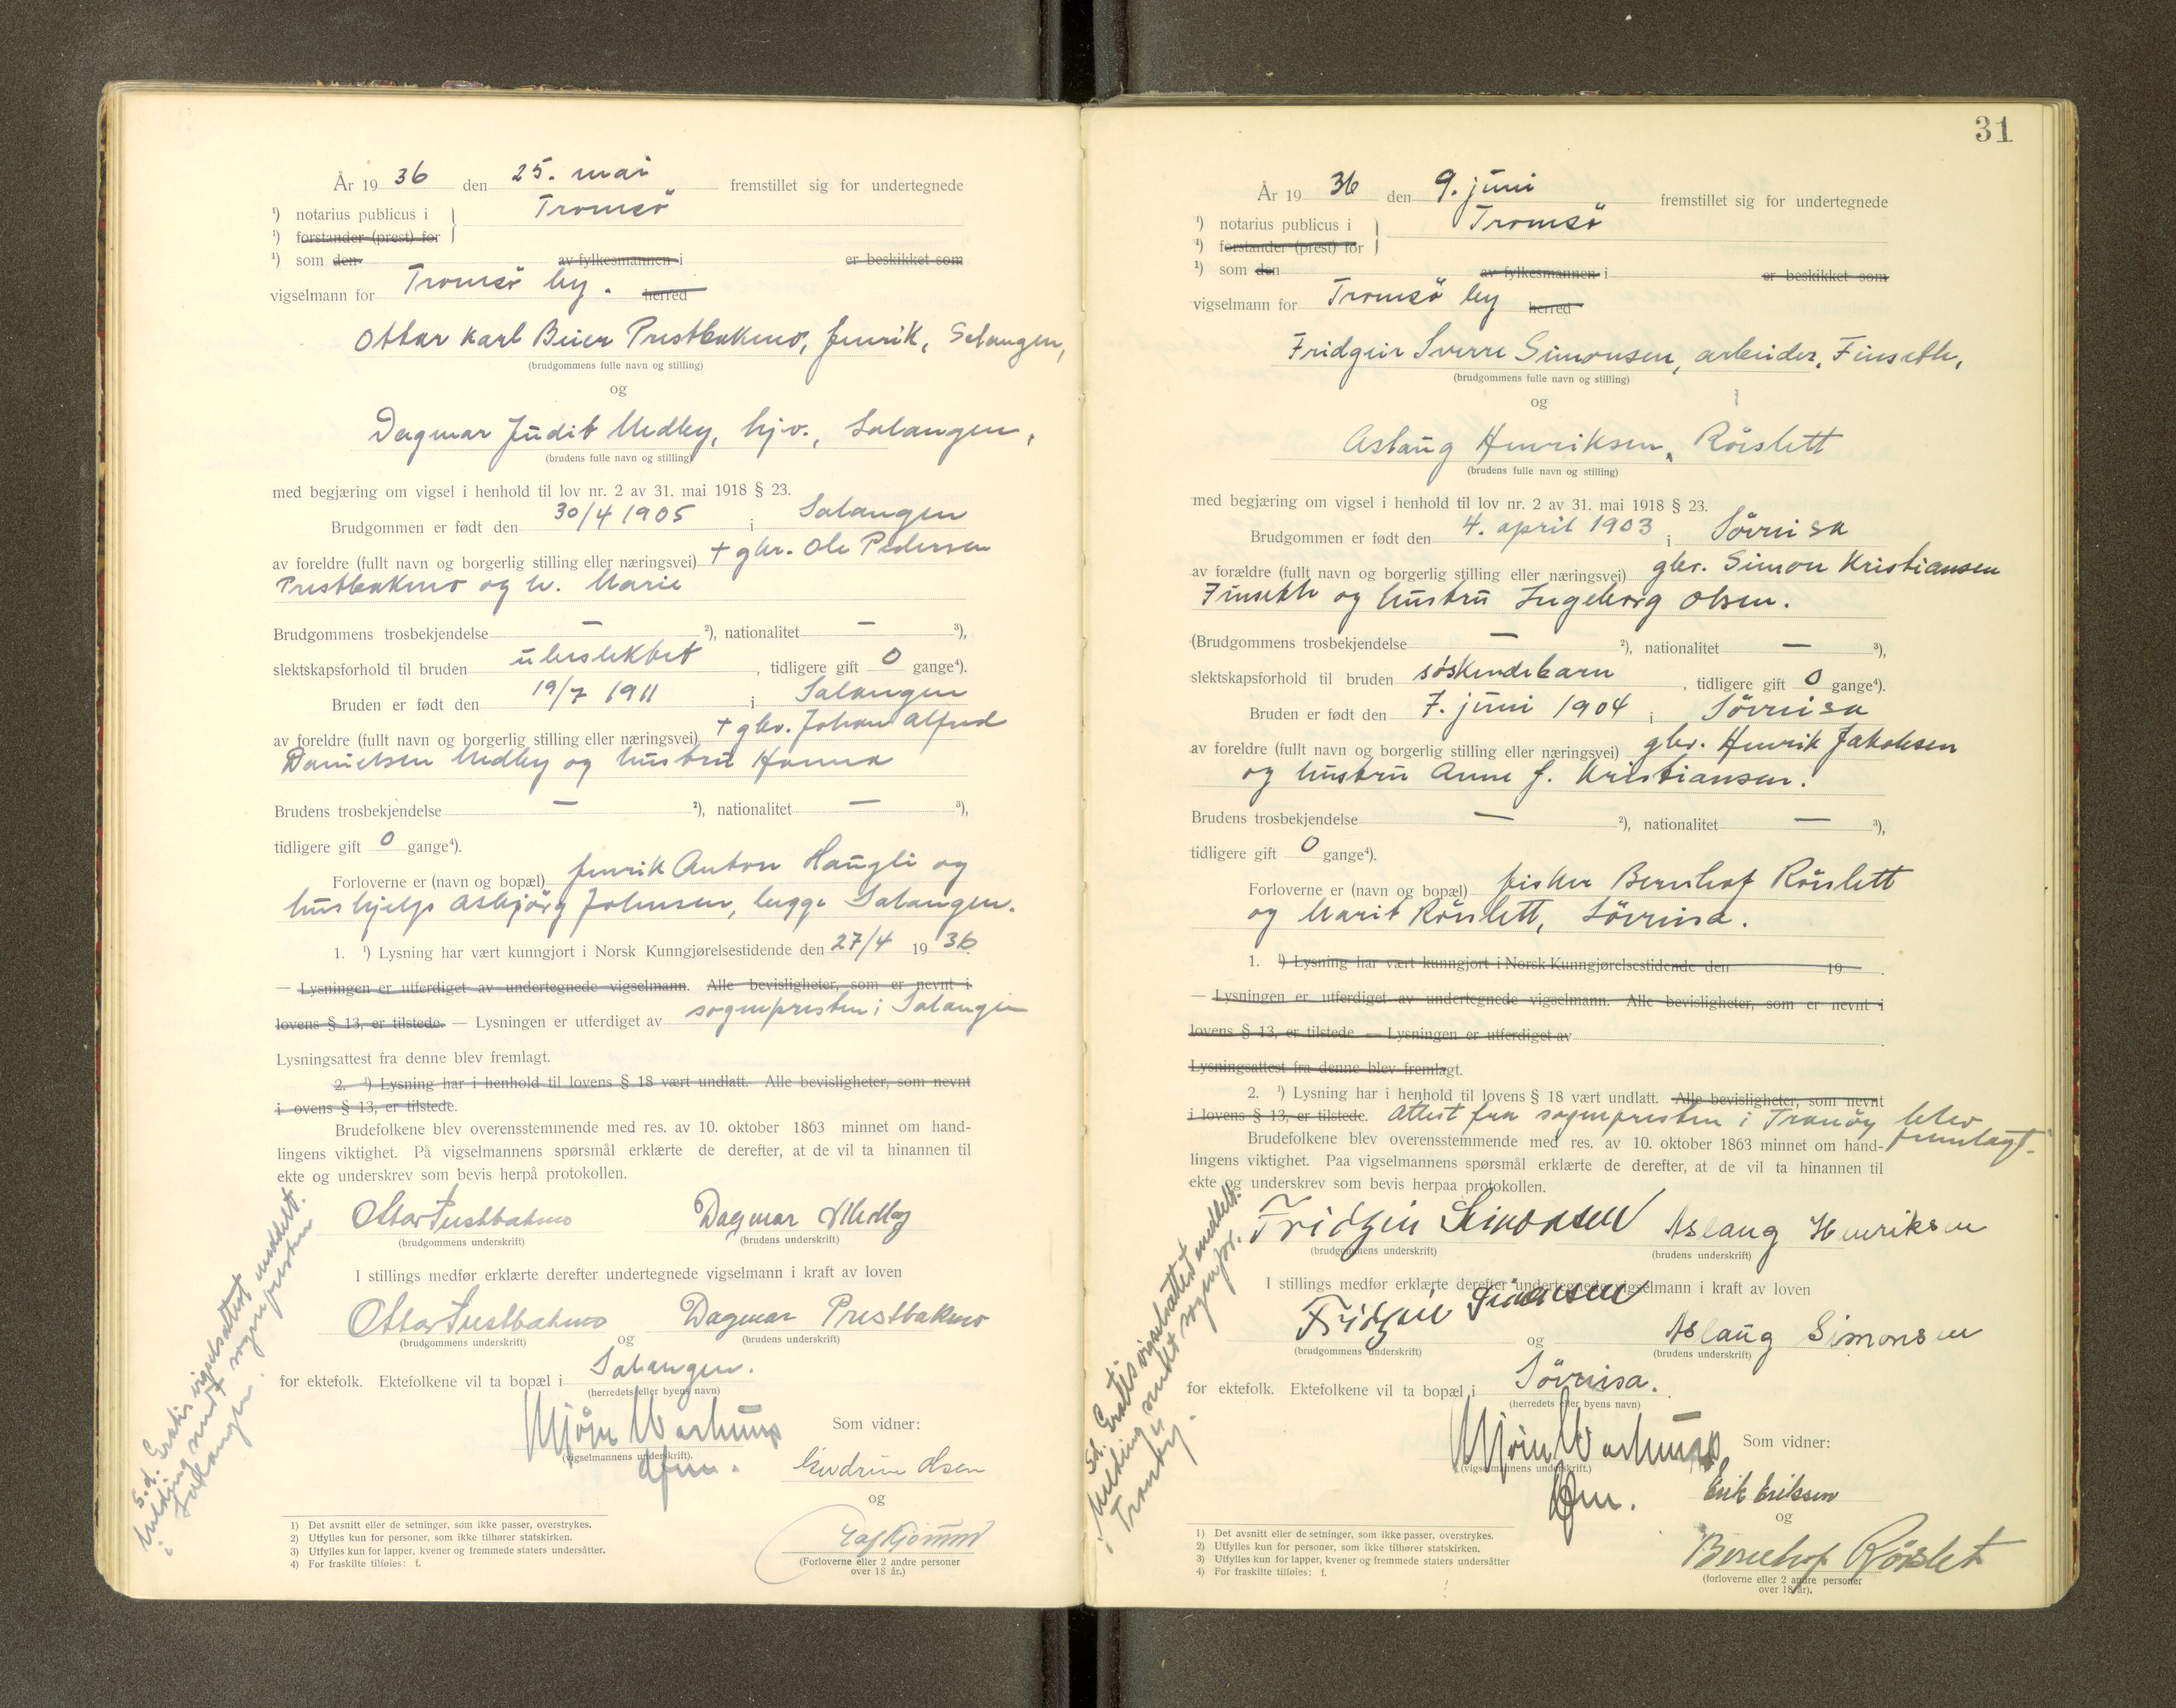 År 19 36 den 25. mai fremstillet sig for undertegnede
¹) notarius publicus i Tromsö
¹) forstander (prest) for
¹) som den av fylkesmannen i er beskikket som
vigselmann for Tromsö by. herred
Ottar Karl Beier Prestbakmo, Salangen,
(brudgommens fulle navn og stilling)
og
Dagmar Judit Medby, hjv., Salangen,
(brudens fulle navn og stilling)
med begjæring om vigsel i henhold til lov nr. 2 av 31. mai 1918 § 23.
Brudgommen er født den 30/4 1905 i Salangen
av foreldre (fullt navn og borgerlig stilling eller næringsvei) + gbr. Ole Pedersen
Prestbakmo og h. Marie
Brudgommens trosbekjendelse — ²), nationalitet — ³),
slektskapsforhold til bruden ubeslektet, tidligere gift 0 gange⁴).
Bruden er født den 19/7 1911 i Salangen
av foreldre (fullt navn og borgerlig stilling eller næringsvei) + gbr. Johan Alfred
Danielsen Medby og hustru Hanna
Brudens trosbekjendelse — ²), nationalitet — ³),
tidligere gift 0 gange⁴).
Forloverne er (navn og bopæl) Anton Haugli og
hushjelp Asbjörg Johnsen, begge Salangen.
1. ¹) Lysning har vært kunngjort i Norsk Kunngjørelsestidende den 27/4 19 36.
— Lysningen er utferdiget av undertegnede vigselmann. Alle bevisligheter, som er nevnt i
lovens § 13, er tilstede. — Lysningen er utferdiget av sognepresten i Salangen
Lysningsattest fra denne blev fremlagt.
2. ¹) Lysning har i henhold til lovens § 18 vært undlatt. Alle bevisligheter, som nevnt
i ovens § 13, er tilstede.
Brudefolkene blev overensstemmende med res. av 10. oktober 1863 minnet om hand-
lingens viktighet. På vigselmannens spørsmål erklærte de derefter, at de vil ta hinannen til
ekte og underskrev som bevis herpå protokollen.
Ottar Prestbakmo Dagmar Medby
(brudgommens underskrift) (brudens underskrift)
I stillings medfør erklærte derefter undertegnede vigselmann i kraft av loven
Ottar Prestbakmo Dagmar Prestbakmo
(brudgommens underskrift) og (brudens underskrift)
for ektefolk. Ektefolkene vil ta bopæl i Salangen.
(herredets eller byens navn)
Som vidner:
(vigselmannens underskrift).
Gudrun Olsen
og
(Forloverne eller 2 andre personer
over 18 år.)
S.d. Gratis vigselsattest meddelt.
Melding sendt sognepresten
i Salangen.
1) Det avsnitt eller de setninger, som ikke passer, overstrykes.
2) Utfylles kun for personer, som ikke tilhører statskirken.
3) Utfylles kun for lapper, kvener og fremmede staters undersåtter.
4) For fraskilte tilføies: f.
31
År 19 36 den 9. juni fremstillet sig for undertegnede
¹) notarius publicus i Tromsö
¹) forstander (prest) for
¹) som den av fylkesmannen i er beskikket som
vigselmann for Tromsö by herred
Fridgeir Sverre Simonsen, arbeider, Finseth,
(brudgommens fulle navn og stilling)
og
Aslaug Henriksen, Röislett
(brudens fulle navn og stilling)
med begjæring om vigsel i henhold til lov nr. 2 av 31. mai 1918 § 23.
Brudgommen er født den 4. april 1903 i Sörreisa
av forældre (fullt navn og borgerlig stilling eller næringsvei) gbr. Simon Kristiansen
Finseth og hustru Ingeborg Olsen.
(Brudgommens trosbekjendelse — ²), nationalitet — ³),
slektskapsforhold til bruden söskendebarn, tidligere gift 0 gange⁴).
Bruden er født den 7. juni 1904 i Sörreisa
av foreldre (fullt navn og borgerlig stilling eller næringsvei) gbr. Henrik Jakobsen
og hustru Anne J. Kristiansen.
Brudens trosbekjendelse — ²), nationalitet — ³),
tidligere gift 0 gange⁴).
Forloverne er (navn og bopæl) fisker Bernhof Röislett
og Marit Röislett, Sörreisa.
1. ¹) Lysning har vært kunngjort i Norsk Kunngjørelsestidende den 19 .
— Lysningen er utferdiget av undertegnede vigselmann. Alle bevisligheter, som er nevnt i
lovens § 13, er tilstede — Lysningen er utferdiget av .
Lysningsattest fra denne blev fremlagt.
2. ¹) Lysning har i henhold til lovens § 18 vært undlatt. Alle bevisligheter, som nevnt
i lovens § 13, er tilstede. Attest fra sognepresten i Tranöy blev
fremlagt.
Brudefolkene blev overensstemmende med res. av 10. oktober 1863 minnet om hand-
lingens viktighet. Paa vigselmannens spørsmål erklærte de derefter, at de vil ta hinannen til
ekte og underskrev som bevis herpaa protokollen.
Fridgeir Simonsen Aslaug Henriksen
(brudgommens underskrift) (brudens underskrift)
I stillings medfør erklærte derefter undertegnede vigselmann i kraft av loven
Fridgeir Simonsen Aslaug Simonsen
(brudgommens underskrift) og (brudens underskrift)
for ektefolk. Ektefolkene vil ta bopæl i Sörreisa.
(herredets eller byens navn)
Som vidner:
(vigselmannens underskrift.)
Erik Eriksen
og
Bernhof Röislet
(forloverne eller 2 andre personer
over 18 år).
S.d. Gratis vigselsattest meddelt.
Melding sendt sognepr.
i Tranöy.
1) Det avsnitt eller de setninger, som ikke passer, overstrykes.
2) Utfylles kun for personer, som ikke tilhører statskirken.
3) Utfylles kun for lapper, kvener og fremmede staters undersåtter
4) For fraskilte tilføies: f.